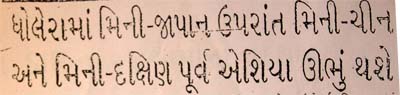 ધોલેરામાં મિની-જાપાન ઉપરાંત મિની-ચીન
અને મિની-દક્ષિણ પૂર્વ એશિયા ઊભું થશે